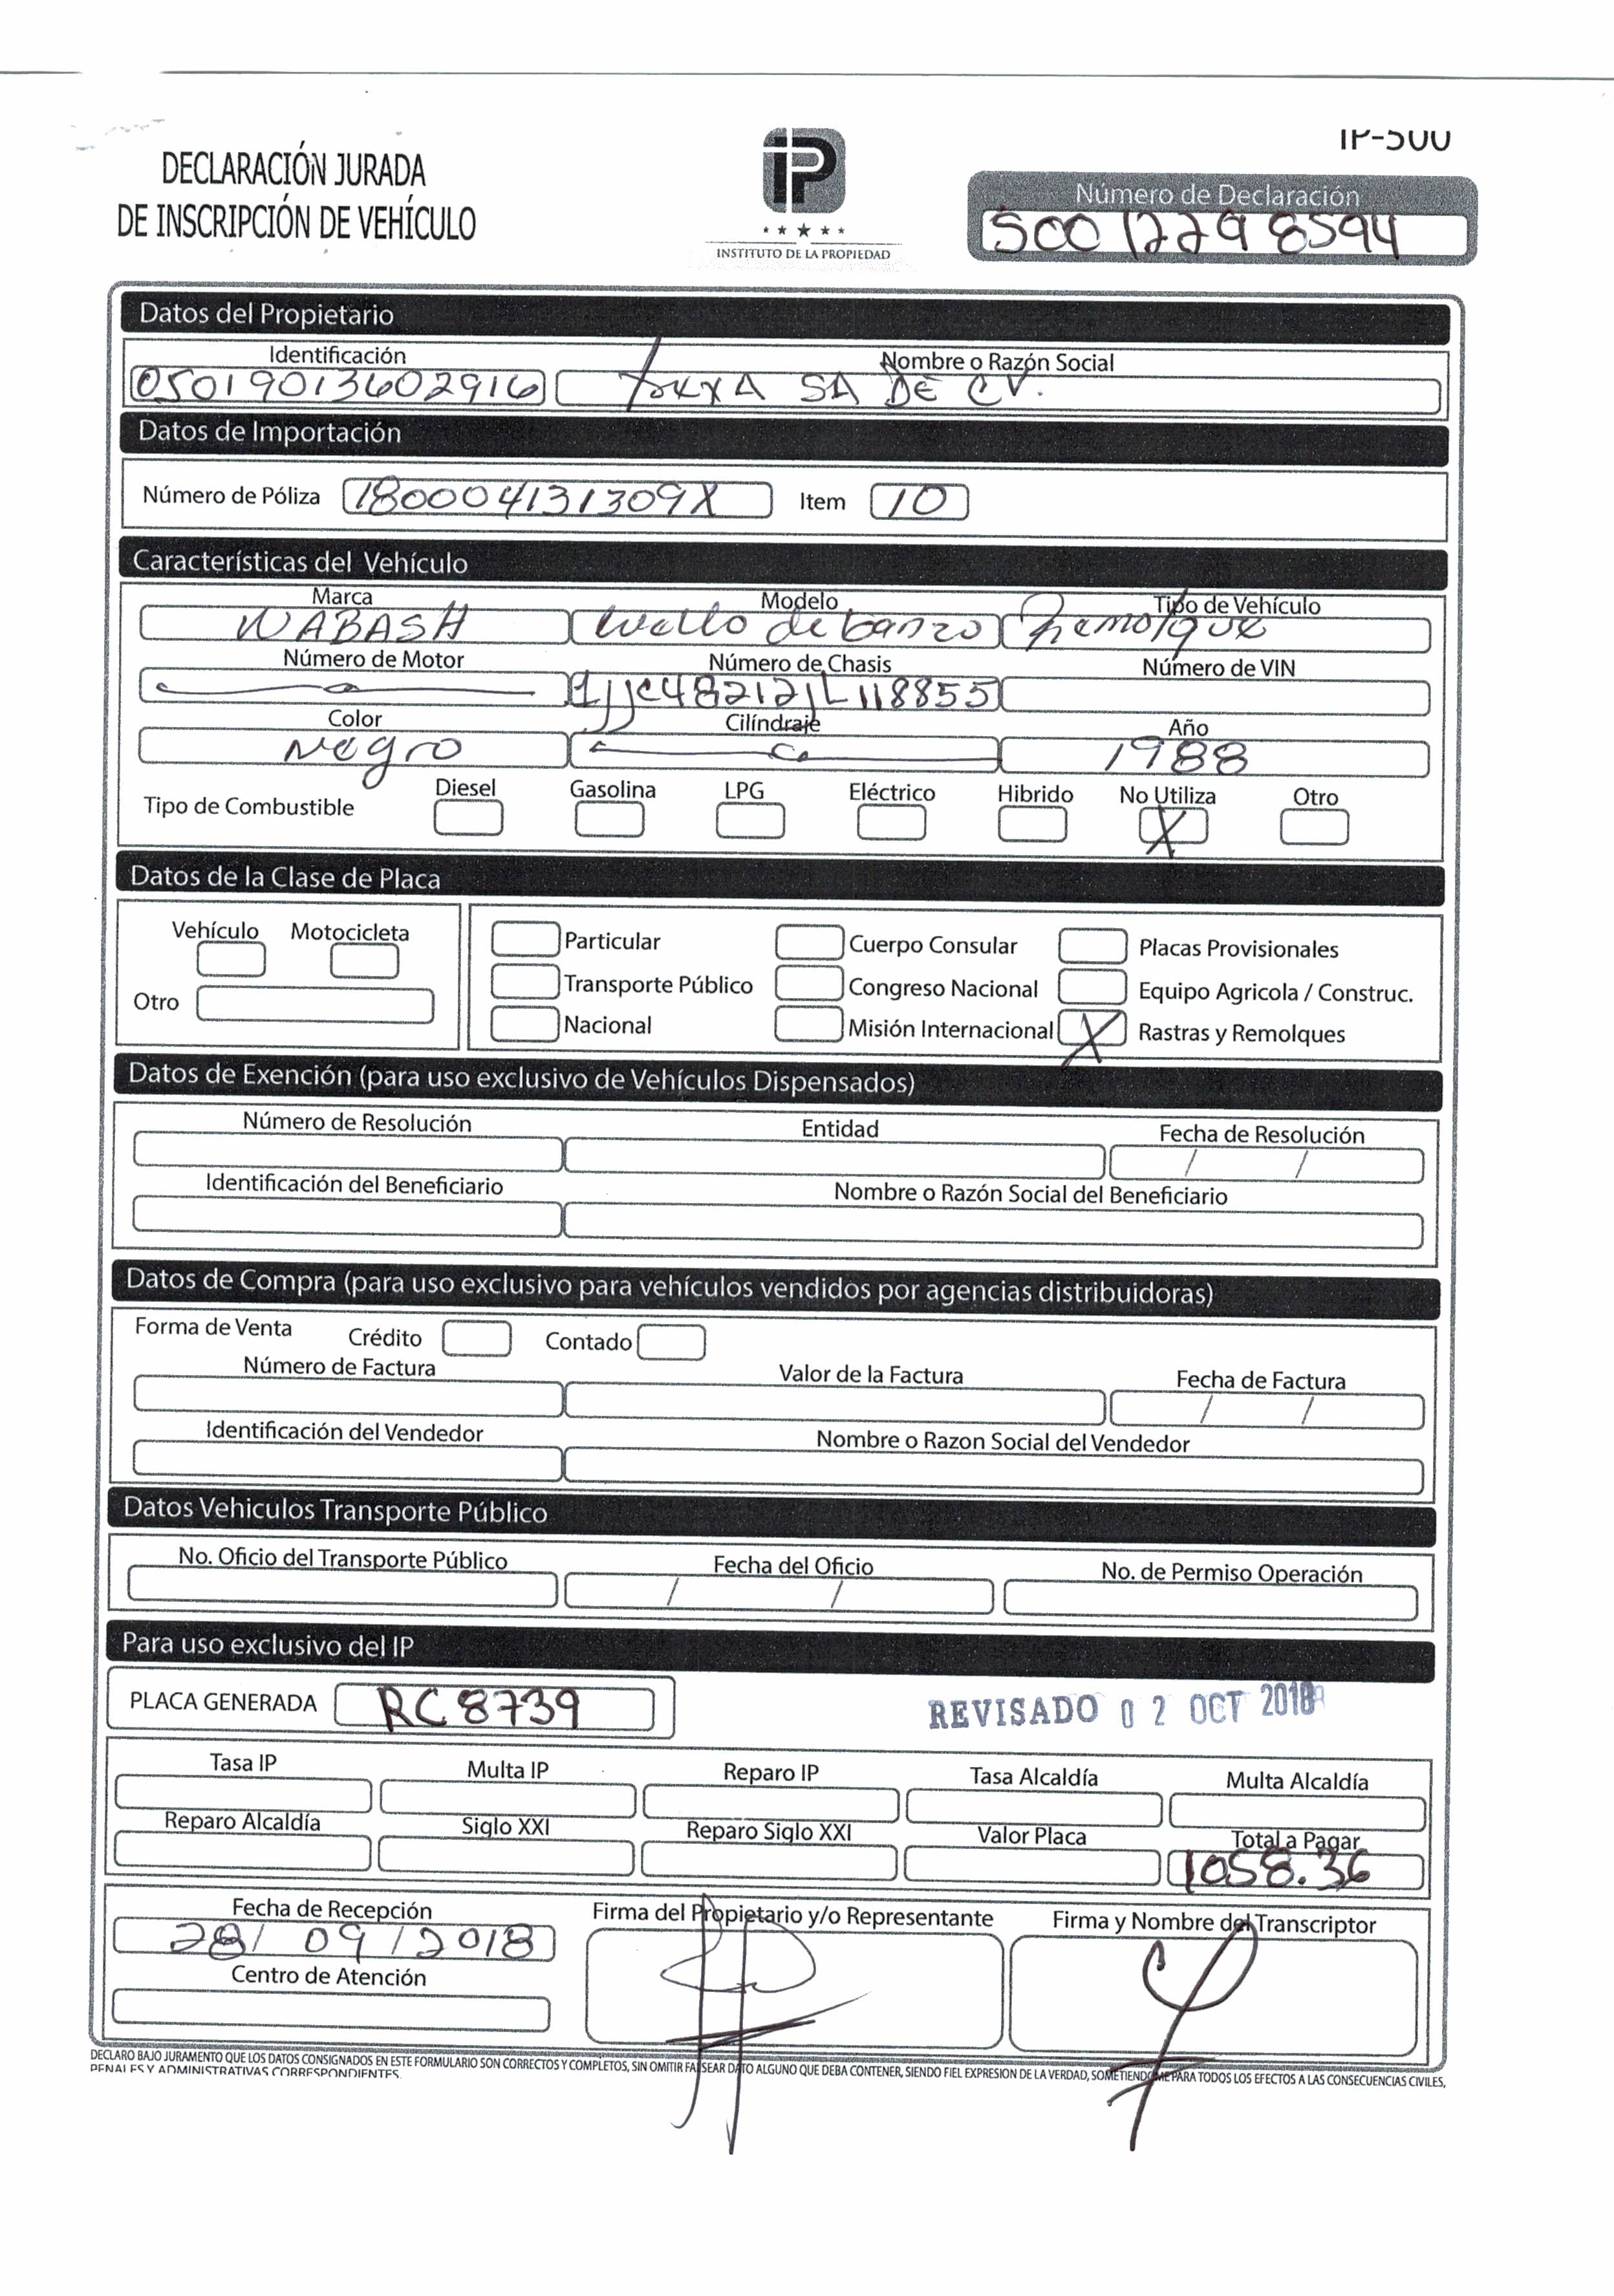 IP-500
DECLARACIÓN JURADA
DE INSCRIPCIÓN DE VEHÍCULO
IP
INSTITUTO DE LA PROPIEDAD
Número de Declaración
50012298594
Datos del Propietario
Identificación Nombre o Razón Social
05019013602916 SA DE CV.
Datos de Importación
Número de Póliza 180004131309X Item 10
Características del Vehículo
Marca Modelo Tipo de Vehículo
WABASH Cuello de Ganzo Remolque
Número de Motor Número de Chasis Número de VIN
1JJC48212JL118855
Color Cilíndraje Año
Negro 1988
Tipo de Combustible Diesel Gasolina LPG Eléctrico Hibrido No Utiliza Otro
X
Datos de la Clase de Placa
Vehículo Motocicleta
Otro
Particular Cuerpo Consular Placas Provisionales
Transporte Público Congreso Nacional Equipo Agricola / Construc.
Nacional Misión Internacional X Rastras y Remolques
Datos de Exención (para uso exclusivo de Vehículos Dispensados)
Número de Resolución Entidad Fecha de Resolución
/ /
Identificación del Beneficiario Nombre o Razón Social del Beneficiario
Datos de Compra (para uso exclusivo para vehículos vendidos por agencias distribuidoras)
Forma de Venta Crédito Contado
Número de Factura Valor de la Factura Fecha de Factura
/ /
Identificación del Vendedor Nombre o Razon Social del Vendedor
Datos Vehiculos Transporte Público
No. Oficio del Transporte Público Fecha del Oficio No. de Permiso Operación
/ /
Para uso exclusivo del IP
PLACA GENERADA RC8739 REVISADO 02 OCT 2018
Tasa IP Multa IP Reparo IP Tasa Alcaldía Multa Alcaldía
Reparo Alcaldía Siglo XXI Reparo Siglo XXI Valor Placa Total a Pagar
1058.36
Fecha de Recepción Firma del Propietario y/o Representante Firma y Nombre del Transcriptor
28/ 09 /2018
Centro de Atención
DECLARO BAJO JURAMENTO QUE LOS DATOS CONSIGNADOS EN ESTE FORMULARIO SON CORRECTOS Y COMPLETOS, SIN OMITIR FALSEAR DATO ALGUNO QUE DEBA CONTENER, SIENDO FIEL EXPRESION DE LA VERDAD, SOMETIENDOME PARA TODOS LOS EFECTOS A LAS CONSECUENCIAS CIVILES,
PENALES Y ADMINISTRATIVAS CORRESPONDIENTES.